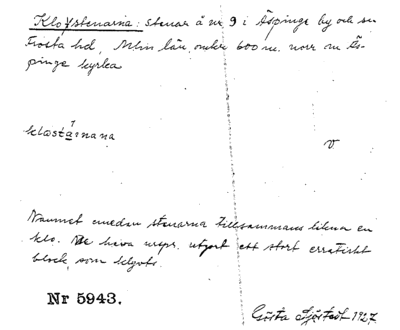 Klofstenarna: stenar å nr 9 i Äspinge by och sn
Frosta hd, Mlm län, omkr 600 m. norr om Äs-
pinge kyrka
klostánana
V
Namnet emedan stenarna tillsammans likna en
klo. De hava urspr. utgjort ett stort erratiskt
block, som klyvts.
Nr 5943.
Gösta Sjöstedt 1927